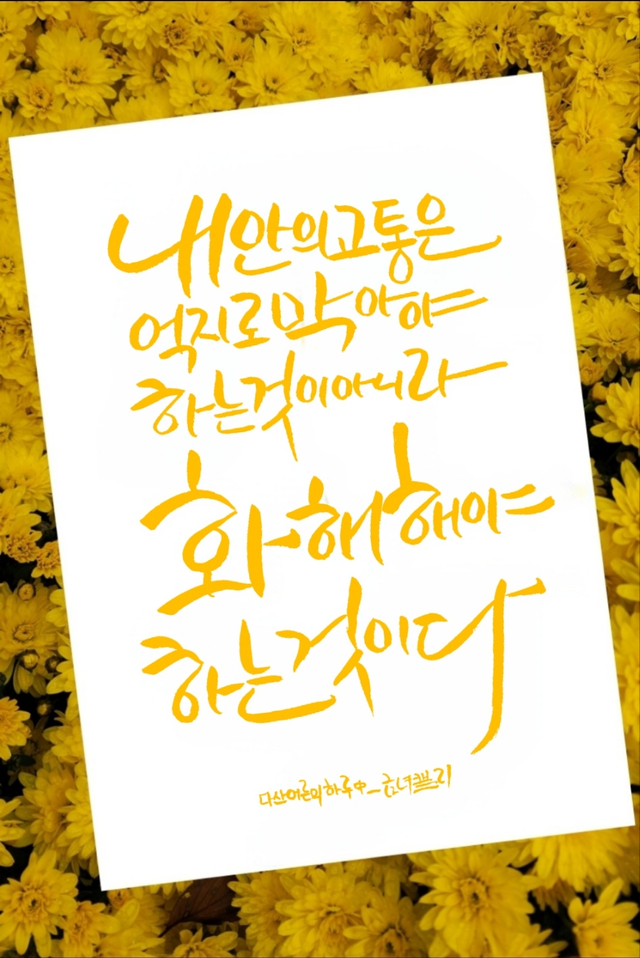 내 안의 고통은
억지로 막아야
하는 것이 아니라
화해해야
하는 것이다
다산어른의 하루 中_